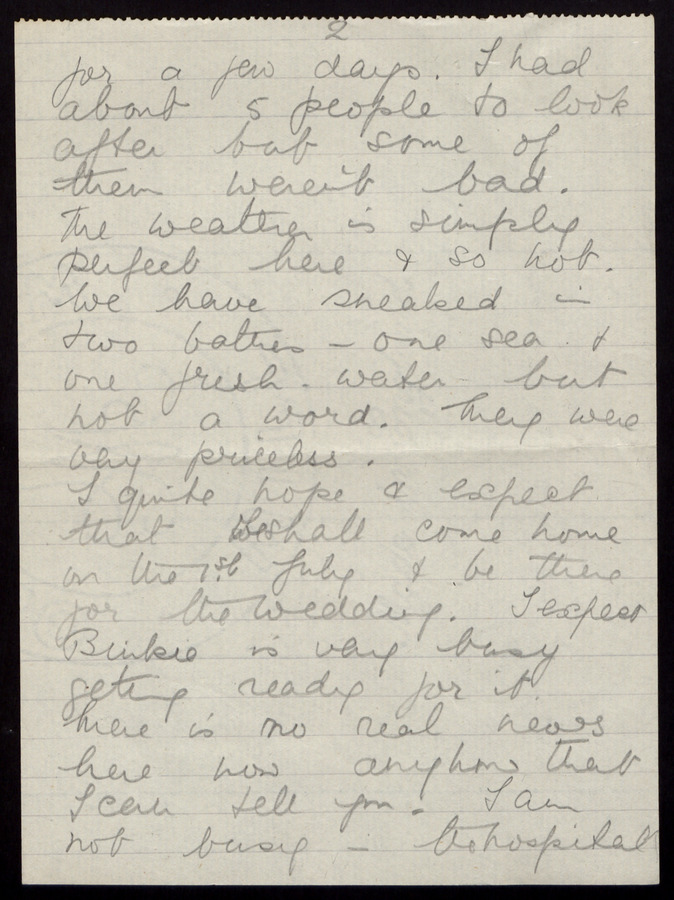 2
for a few days. I had
about 5 people to look
after but some of
them weren't bad.
The weather is simply
perfect here & so hot.
We have sneaked in
two bathes – one sea &
one fresh-water but
not a word. They were
very priceless.
I quite hope & expect
that shall come home
on the 1st July & be there
for the wedding. I expect
Binkie is very busy
geting ready for it.
There is no real news
here now anyhow that
I can tell you. I am
not busy – hospital